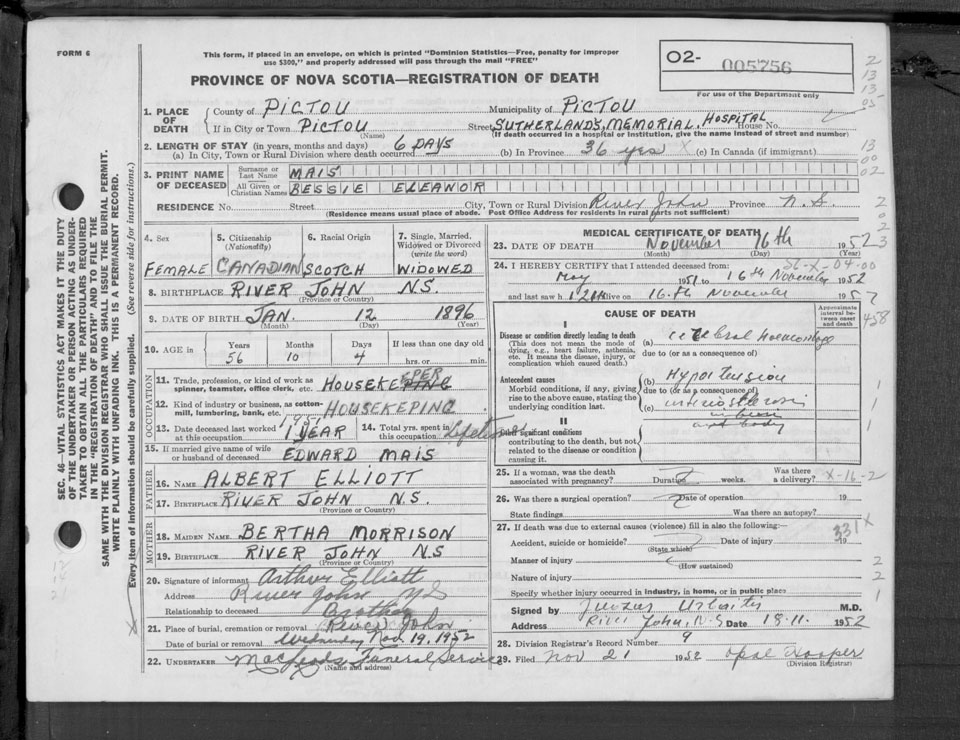 FORM 6
This form, if placed in an envelope, on which is printed "Dominion Statistics—Free, penalty for improper
use $300," and properly addressed will pass through the mail "FREE"
PROVINCE OF NOVA SCOTIA—REGISTRATION OF DEATH
O2- 005756
For use of the Department only
2
13
13
05
13
00
02
2
0
2
3
SEC. 46—VITAL STATISTICS ACT MAKES IT THE DUTY
OF THE UNDERTAKER OR PERSON ACTING AS UNDER-
TAKER TO OBTAIN ALL THE PARTICULARS REQUIRED
IN THE "REGISTRATION OF DEATH" AND TO FILE THE
SAME WITH THE DIVISION REGISTRAR WHO SHALL ISSUE THE BURIAL PERMIT.
WRITE PLAINLY WITH UNFADING INK. THIS IS A PERMANENT RECORD.
Every Item of Information should be carefully supplied. (See reverse side for instructions.)
1. PLACE OF DEATH
County of PICTOU Municipality of PICTOU
If in City or Town PICTOU Street SUTHERLAND'S MEMORIAL HOSPITAL House No.
(Name) (If death occurred in a hospital or Institution, give the name Instead of street and number)
2. LENGTH OF STAY (in years, months and days)
(a) In City, Town or Rural Division where death occurred 6 DAYS (b) In Province 36 yrs X (c) In Canada (if immigrant)
3. PRINT NAME OF DECEASED
Surname or Last Name MAIS
All Given or Christian Names BESSIE ELEANOR
RESIDENCE No. Street City, Town or Rural Division River John Province N.S.
(Residence means usual place of abode. Post Office Address for residents in rural parts not sufficient)
4. Sex
FEMALE
5. Citizenship
(Nationality)
CANADIAN
6. Racial Origin
SCOTCH
7. Single, Married,
Widowed or Divorced
(write the word)
WIDOWED
8. BIRTHPLACE RIVER JOHN N.S.
(Province or Country)
9. DATE OF BIRTH JAN. 12 1896
(Month) (Day) (Year)
10. AGE in Years Months Days If less than one day old
56 10 4 hrs. or min.
OCCUPATION
11. Trade, profession, or kind of work as
spinner, teamster, office clerk, etc. HOUSEKEEPER
12. Kind of industry or business, as cotton-
mill, lumbering, bank, etc. HOUSEKEPING
13. Date deceased last worked
at this occupation 1951 1 YEAR
14. Total yrs. spent in
this occupation Lifetime
15. If married give name of wife
or husband of deceased EDWARD MAIS
FATHER
16. Name ALBERT ELLIOTT
17. Birthplace RIVER JOHN N.S.
(Province or Country)
MOTHER
18. Maiden Name BERTHA MORRISON
19. Birthplace RIVER JOHN N.S
(Province or Country)
20. Signature of informant Arthur Elliott
Address River John N.S
Relationship to deceased Brother
21. Place of burial, cremation or removal River John
Date of burial or removal Wednesday Nov. 19, 1952
22. Undertaker MacLeods Funeral Service
(Name and address)
MEDICAL CERTIFICATE OF DEATH
23. DATE OF DEATH November 16th 1952
(Month) (Day) (Year)
24. I HEREBY CERTIFY that I attended deceased from:
May 1951 to 16th November 1952
and last saw h alive on 16th November 1952
458
CAUSE OF DEATH
Approximate interval between onset and death
I
Disease or condition directly leading to death
(This does not mean the mode of
dying, e.g., heart failure, asthenia,
etc. It means the disease, injury, or
complication which caused death.)
(a) cerebral Hoemorrhage
due to (or as a consequence of)
Antecedent causes
Morbid conditions, if any, giving
rise to the above cause, stating the
underlying condition last.
(b) Hypertension
due to (or as a consequence of)
(c) arteriosclerosis
II
Other significant conditions
contributing to the death, but not
related to the disease or condition
causing it.
1
1
1
25. If a woman, was the death
associated with pregnancy? Duration weeks. Was there
a delivery? X-16-2
26. Was there a surgical operation? Date of operation 19
State findings Was there an autopsy?
27. If death was due to external causes (violence) fill in also the following:—
331X
Accident, suicide or homicide? Date of injury 19
(State which)
Manner of injury 2
(How sustained)
Nature of injury 2
Specify whether injury occurred in industry, in home, or in public place 1
Signed by M.D.
Address River John, N.S Date 18.11. 1952
28. Division Registrar's Record Number 9
29. Filed Nov 21 1952 Opal Hooper
(Division Registrar)